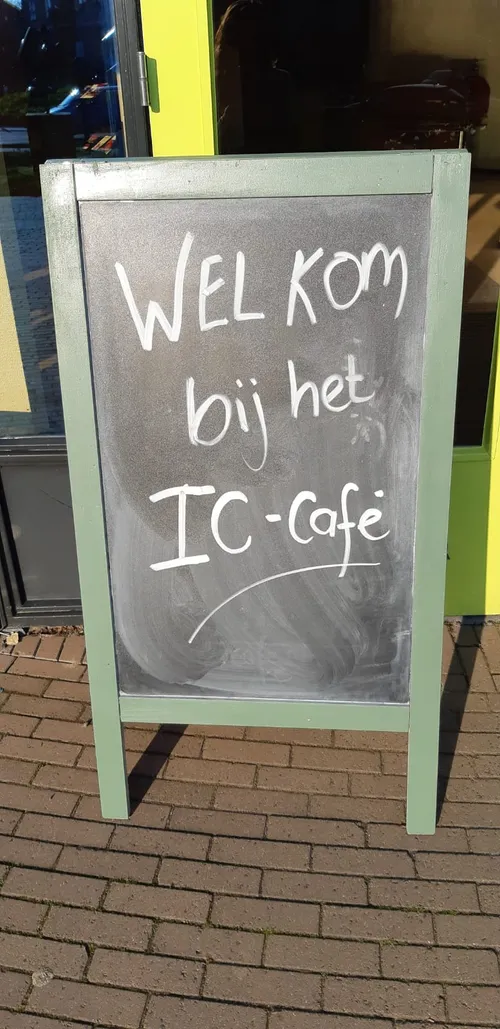 WELKOM
bij het
IC-Café